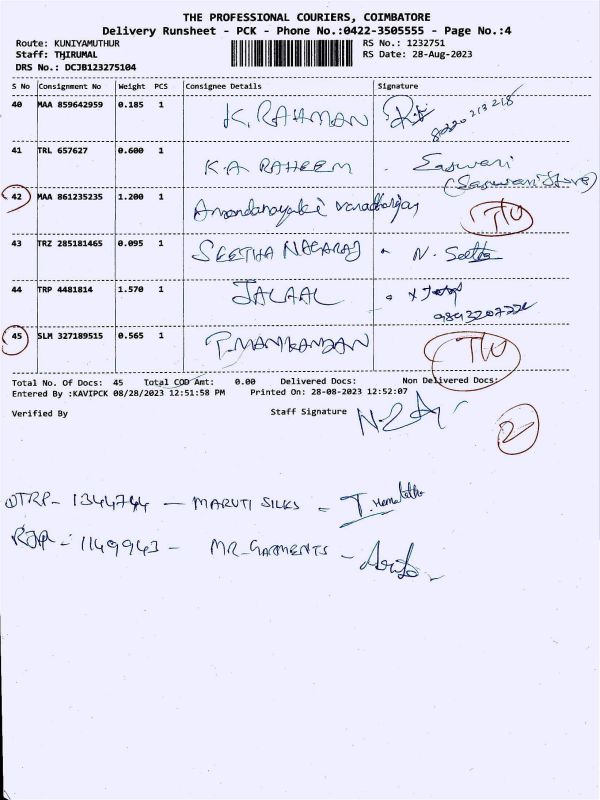 THE PROFESSIONAL COURIERS, COIMBATORE
Delivery Runsheet - PCK - Phone No.:0422-3505555 - Page No.:4
Route: KUNIYAMUTHUR RS No.: 1232751
Staff: THIRUMAL RS Date: 28-Aug-2023
DRS No.: DCJB123275104
S No Consignment No Weight PCS Consignee Details Signature
40 MAA 859642959 0.185 1 K. RAHMAN
41 TRL 657627 0.600 1 K.A RAHEEM Easwari
(Easwari Store)
42 MAA 861235235 1.200 1 Anandanayaki varadharajan
43 TRZ 285181465 0.095 1 SEETHA NAGARAJ N. Seetha
44 TRP 4481814 1.570 1 JALAAL
45 SLM 327189515 0.565 1 T. MANIKANDAN
Total No. Of Docs: 45 Total COD Amt: 0.00 Delivered Docs: Non Delivered Docs:
Entered By :KAVIPCK 08/28/2023 12:51:58 PM Printed On: 28-08-2023 12:52:07
Verified By Staff Signature
2
DTRP - 1344744 - MARUTI SILKS - T. Hemalatha
RJP - 1149943 - MR-GARMENTS -